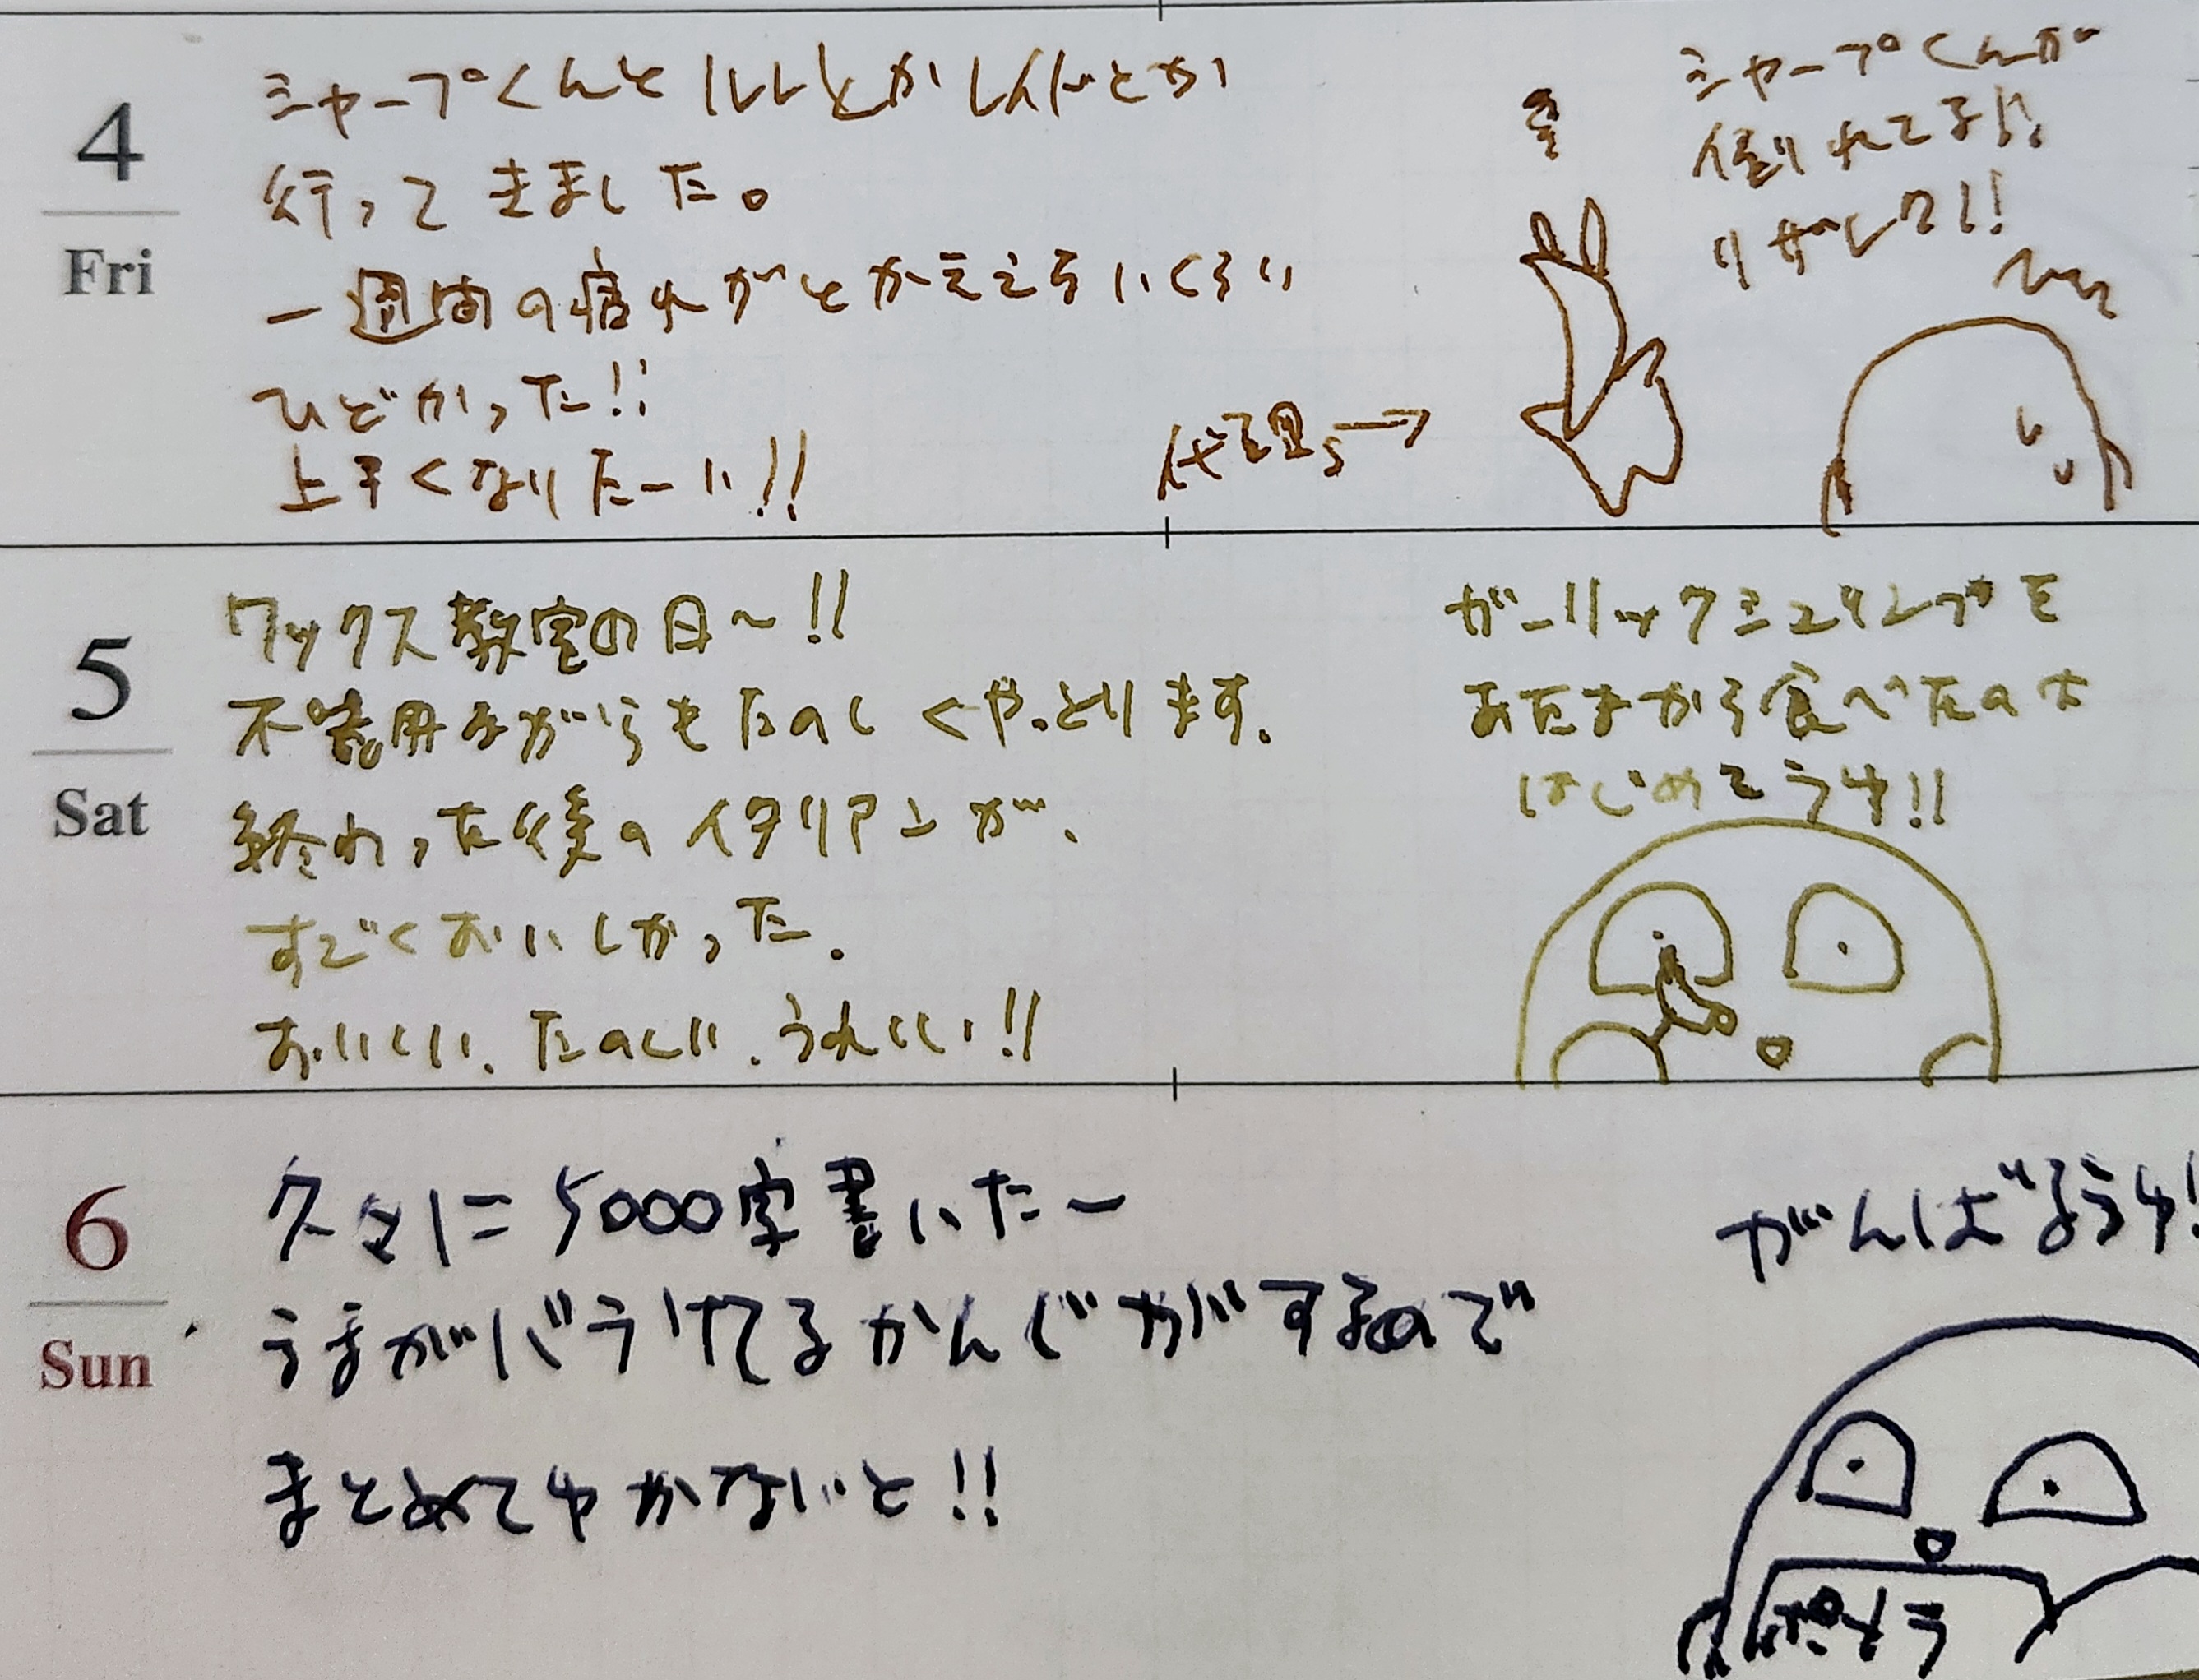 4
Fri
シャープくんと ルルとかしんだとか
行ってきました。
一週間の疲れがとか言えないくらい
ひどかった!!
上手くなりたーい!!
シャープくんが
倒れてる!!
リザレク!!
代理→
5
Sat
ワックス教室の日〜!!
不器用ながらもたのしくやっとります。
終わった後のイタリアンが、
すごくおいしかった。
おいしい、たのしい、うれしい!!
ガーリックシュリンプを
あたまから食べたのは
はじめてうゆ!!
6
Sun
久々に5000字書いたー
うまがバラけてるかんじがするので
まとめてゆかないと!!
がんばるうゆ!